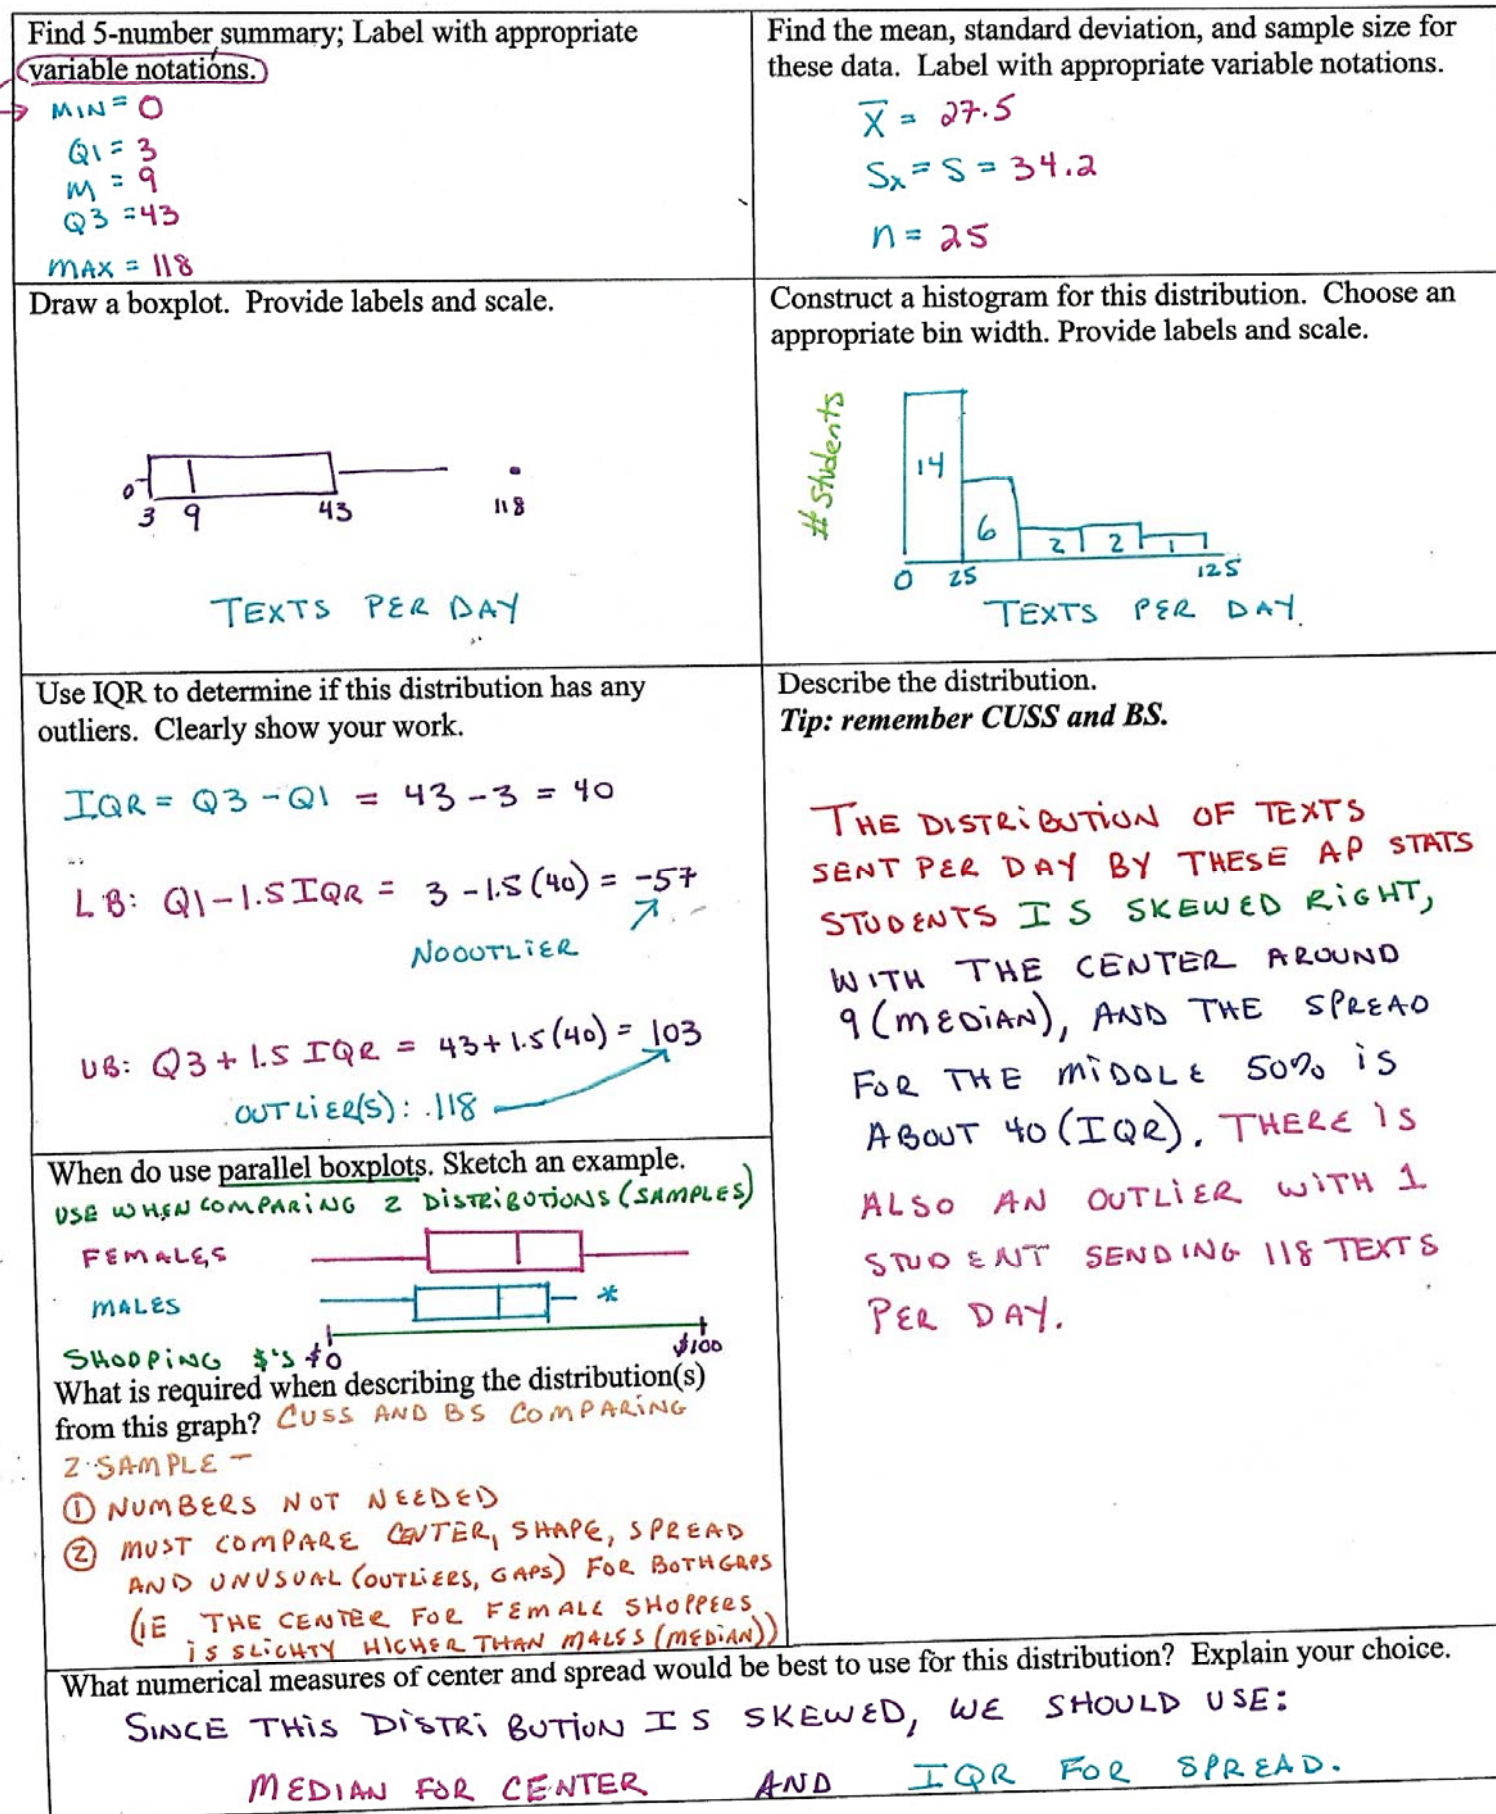 Find 5-number summary; Label with appropriate
variable notations.
MIN = 0
Q1 = 3
M = 9
Q3 = 43
MAX = 118
Find the mean, standard deviation, and sample size for
these data. Label with appropriate variable notations.
x̅ = 27.5
Sx = S = 34.2
n = 25
Draw a boxplot. Provide labels and scale.
0
3 9 43 118
TEXTS PER DAY
Construct a histogram for this distribution. Choose an
appropriate bin width. Provide labels and scale.
# Students
14
6
2 2 1
0 25 125
TEXTS PER DAY.
Use IQR to determine if this distribution has any
outliers. Clearly show your work.
IQR = Q3 - Q1 = 43 - 3 = 40
LB: Q1 - 1.5 IQR = 3 - 1.5 (40) = -57
NO OUTLIER
UB: Q3 + 1.5 IQR = 43 + 1.5 (40) = 103
OUTLIER(S): .118
Describe the distribution.
Tip: remember CUSS and BS.
THE DISTRIBUTION OF TEXTS
SENT PER DAY BY THESE AP STATS
STUDENTS IS SKEWED RIGHT,
WITH THE CENTER AROUND
9 (MEDIAN), AND THE SPREAD
FOR THE MIDDLE 50% IS
ABOUT 40 (IQR). THERE IS
ALSO AN OUTLIER WITH 1
STUDENT SENDING 118 TEXTS
PER DAY.
When do use parallel boxplots. Sketch an example.
USE WHEN COMPARING 2 DISTRIBUTIONS (SAMPLES)
FEMALES
MALES *
SHOPPING $'S $0 $100
What is required when describing the distribution(s)
from this graph? CUSS AND BS COMPARING
2 SAMPLE -
① NUMBERS NOT NEEDED
② MUST COMPARE CENTER, SHAPE, SPREAD
AND UNUSUAL (OUTLIERS, GAPS) FOR BOTH GRPS
(IE THE CENTER FOR FEMALE SHOPPERS
IS SLIGHTY HIGHER THAN MALES (MEDIAN))
What numerical measures of center and spread would be best to use for this distribution? Explain your choice.
SINCE THIS DISTRIBUTION IS SKEWED, WE SHOULD USE:
MEDIAN FOR CENTER AND IQR FOR SPREAD.